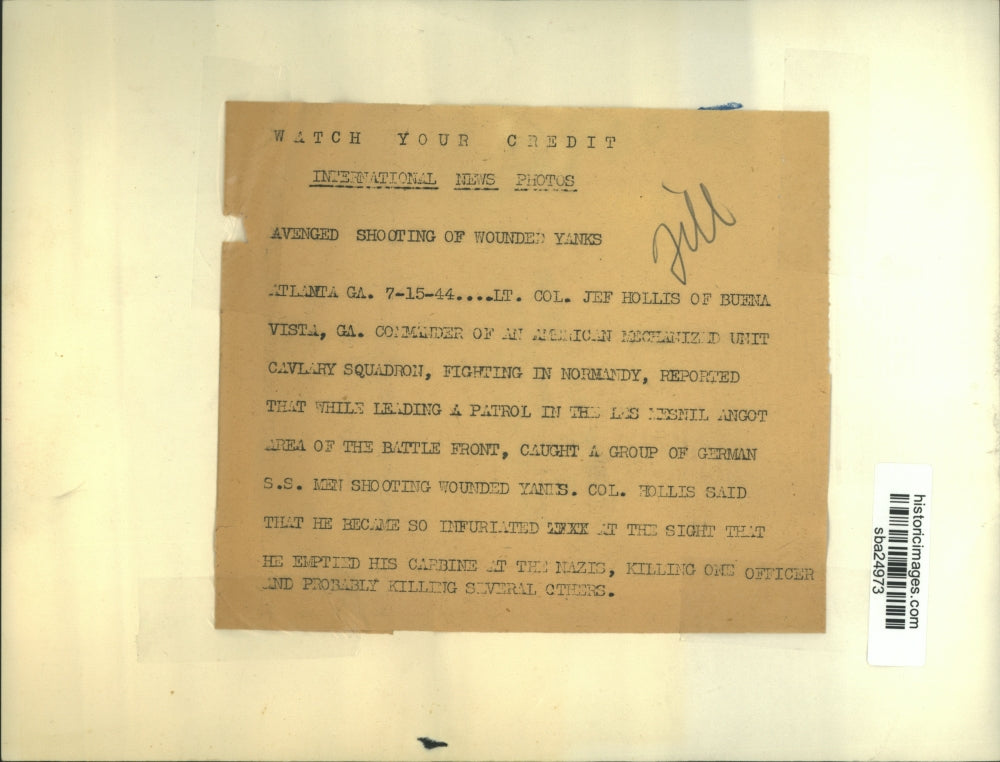 WATCH YOUR CREDIT
INTERNATIONAL NEWS PHOTOS
AVENGED SHOOTING OF WOUNDED YANKS
ATLANTA GA. 7-15-44....LT. COL. JEF HOLLIS OF BUENA
VISTA, GA. COMMANDER OF AN AMERICAN MECHANIZED UNIT
CAVLARY SQUADRON, FIGHTING IN NORMANDY, REPORTED
THAT WHILE LEADING A PATROL IN THE LES MESNIL ANGOT
AREA OF THE BATTLE FRONT, CAUGHT A GROUP OF GERMAN
S.S. MEN SHOOTING WOUNDED YANKS. COL. HOLLIS SAID
THAT HE BECAME SO INFURIATED AT THE SIGHT THAT
HE EMPTIED HIS CARBINE AT THE NAZIS, KILLING ONE OFFICER
AND PROBABLY KILLING SEVERAL OTHERS.
historicimages.com
sba24973